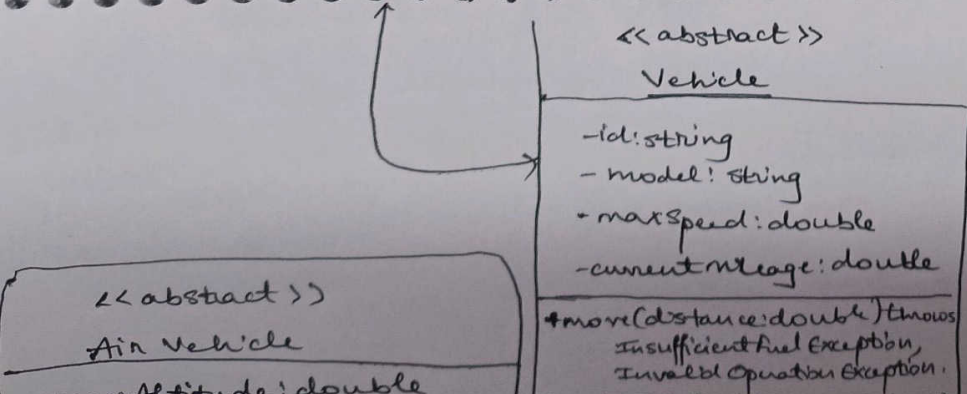 <<abstract>>
Vehicle
-id:string
- model: string
- maxspeed:double
-currentMileage:double
+move(distance:double)throws
InsufficientFuelException,
InvalidOperationException.
<<abstract>>
Air Vehicle
-Altitude:double